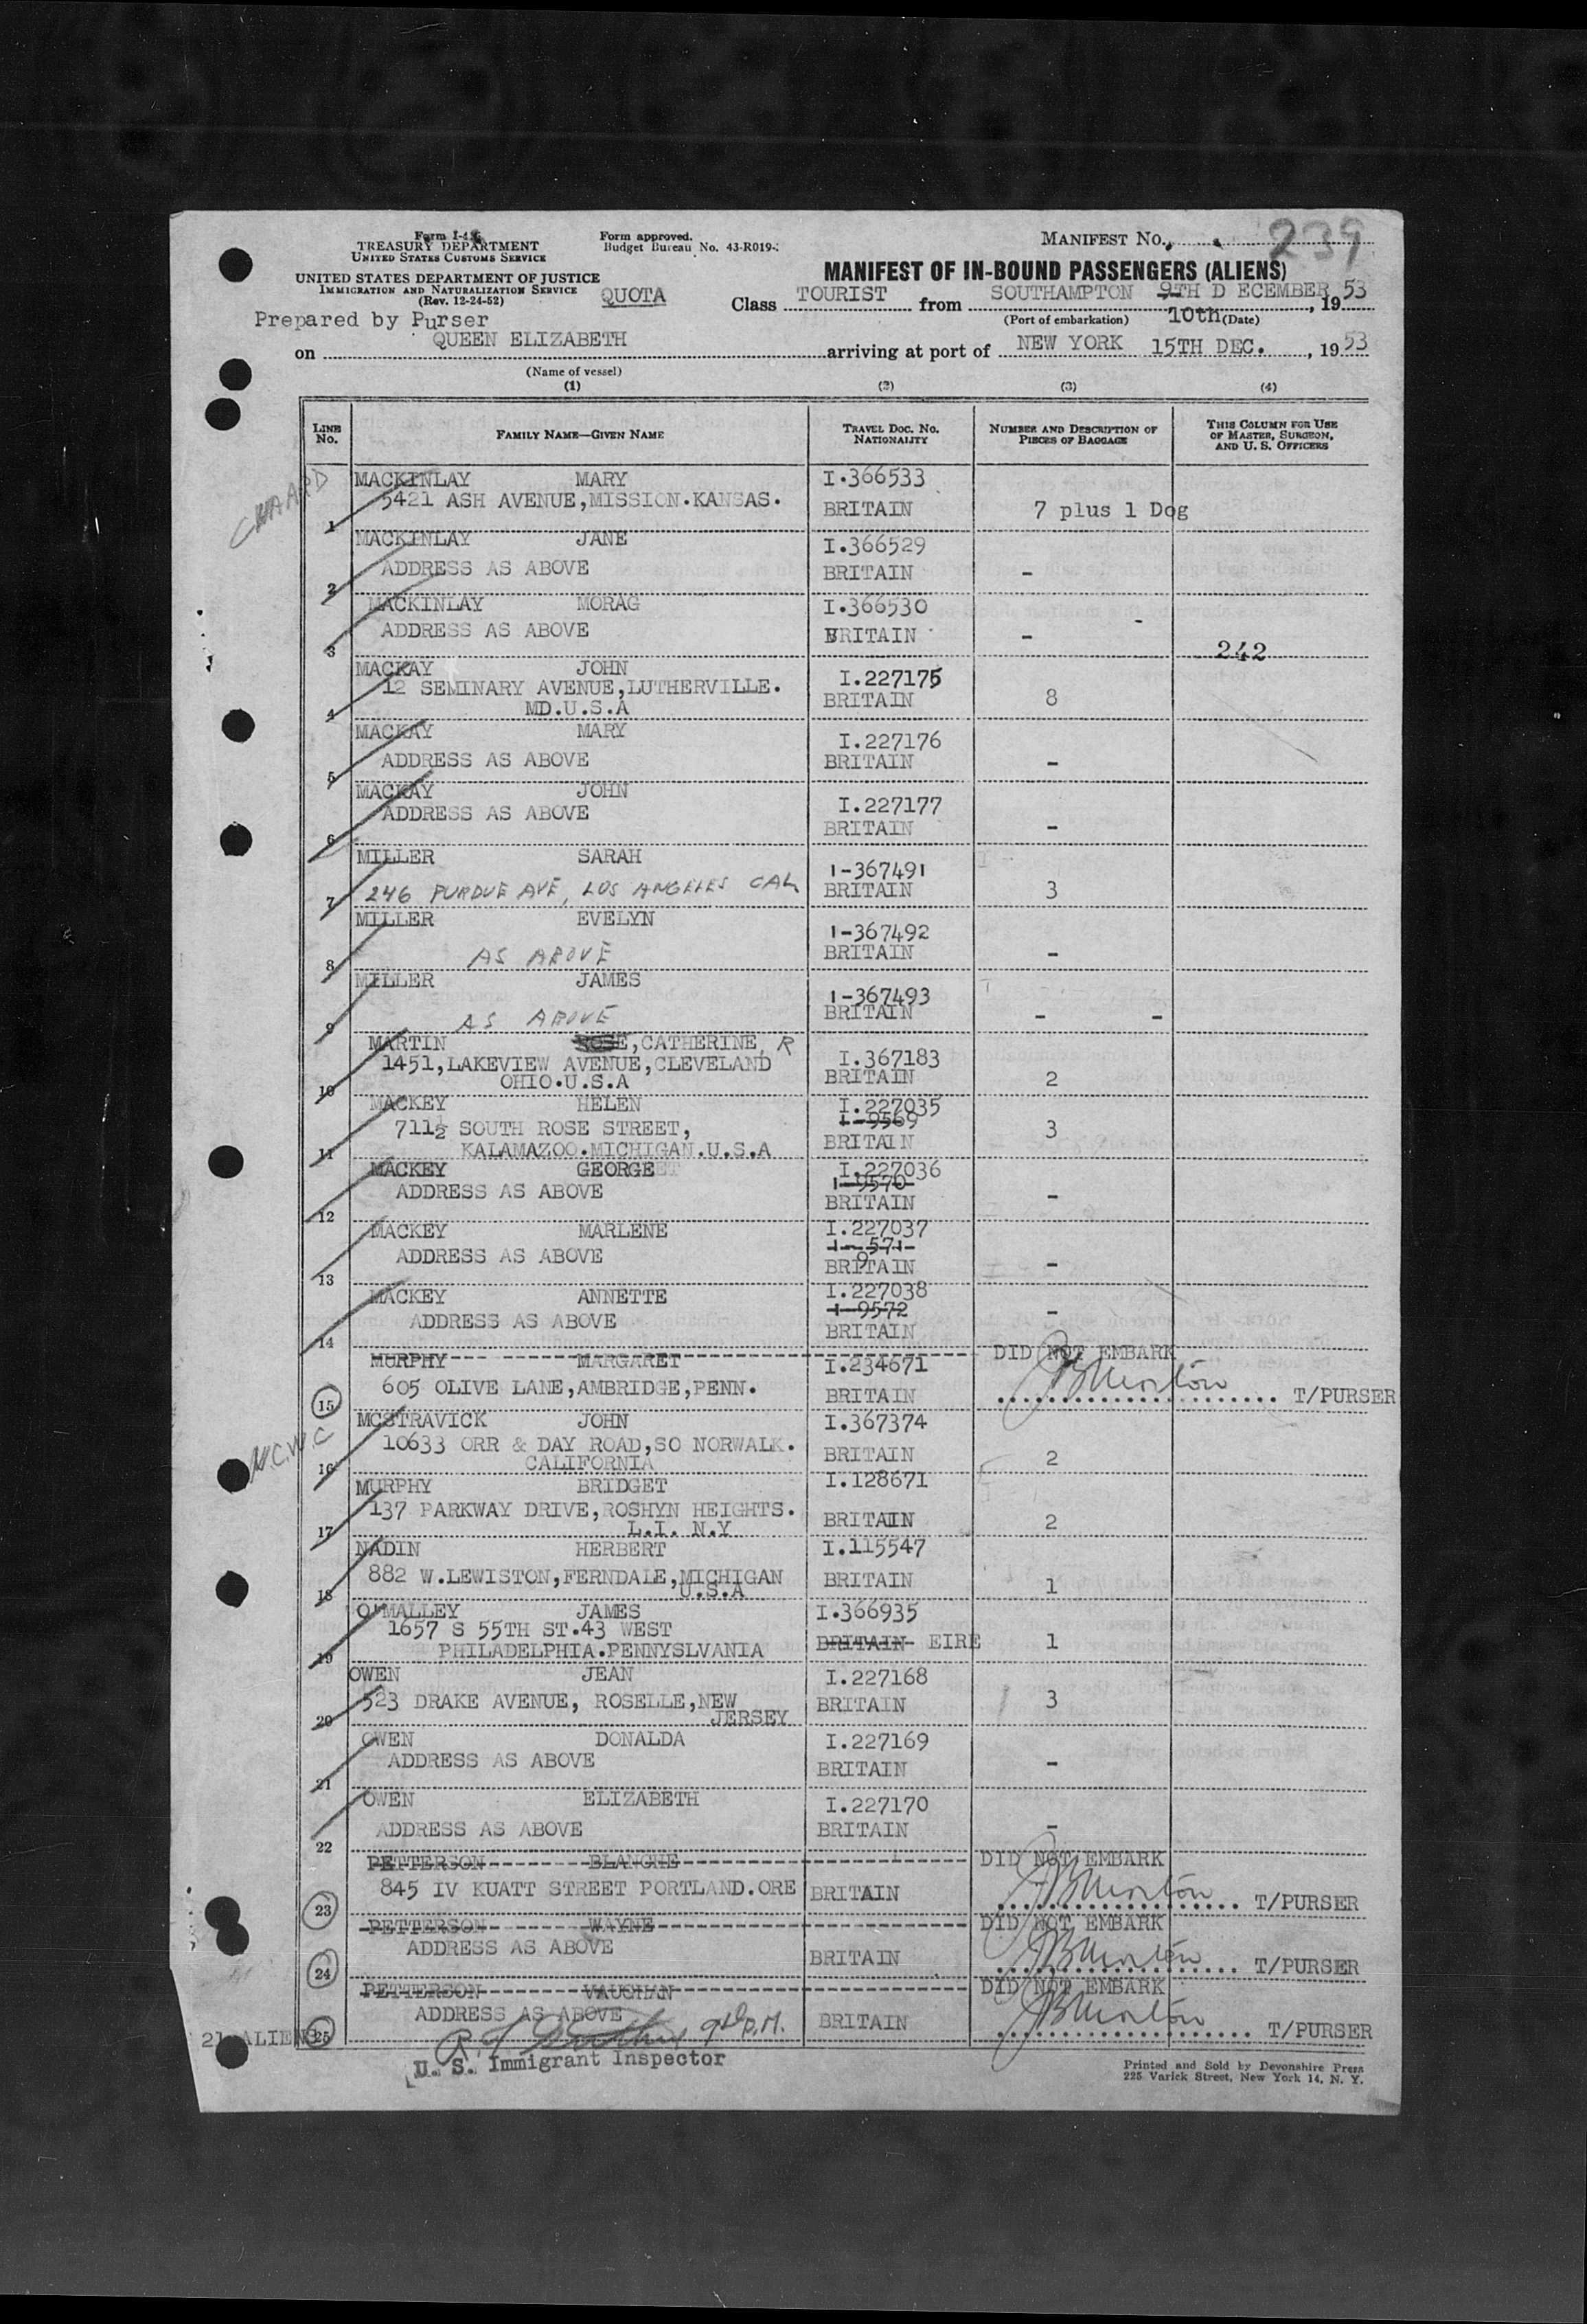 Form I-4
TREASURY DEPARTMENT
UNITED STATES CUSTOMS SERVICE
UNITED STATES DEPARTMENT OF JUSTICE
IMMIGRATION AND NATURALIZATION SERVICE
(Rev. 12-24-52)
Form approved.
Budget Bureau No. 43-R019-
MANIFEST No. 239
MANIFEST OF IN-BOUND PASSENGERS (ALIENS)
QUOTA
Class TOURIST from SOUTHAMPTON 9TH D ECEMBER, 1953
(Port of embarkation) 10th (Date)
Prepared by Purser
on QUEEN ELIZABETH arriving at port of NEW YORK 15TH DEC. , 1953
(Name of vessel)
(1) (2) (3) (4)
LINE No. FAMILY NAME—GIVEN NAME TRAVEL DOC. NO. NATIONALITY NUMBER AND DESCRIPTION OF PIECES OF BAGGAGE THIS COLUMN FOR USE OF MASTER, SURGEON, AND U. S. OFFICERS
MACKINLAY MARY I.366533
5421 ASH AVENUE,MISSION.KANSAS.
1 BRITAIN 7 plus 1 Dog
MACKINLAY JANE I.366529
ADDRESS AS ABOVE
2 BRITAIN -
MACKINLAY MORAG I.366530
ADDRESS AS ABOVE
3 BRITAIN - 242
MACKAY JOHN I.227175
12 SEMINARY AVENUE,LUTHERVILLE.
4 MD.U.S.A BRITAIN 8
MACKAY MARY I.227176
5 ADDRESS AS ABOVE BRITAIN -
MACKAY JOHN I.227177
ADDRESS AS ABOVE
6 BRITAIN -
MILLER SARAH 1-367491
7 246 PURDUE AVE, LOS ANGELES CAL BRITAIN 3
MILLER EVELYN 1-367492
8 AS ABOVE BRITAIN -
MILLER JAMES 1-367493
9 AS ABOVE BRITAIN - -
MARTIN ROSE,CATHERINE, R I.367183
1451,LAKEVIEW AVENUE,CLEVELAND
10 OHIO.U.S.A BRITAIN 2
MACKEY HELEN I.227035
711½ SOUTH ROSE STREET, 1-9569
11 KALAMAZOO.MICHIGAN.U.S.A BRITAIN 3
MACKEY GEORGE I.227036
ADDRESS AS ABOVE 1-9570
12 BRITAIN -
MACKEY MARLENE I.227037
ADDRESS AS ABOVE 1-9571
13 BRITAIN -
MACKEY ANNETTE I.227038
ADDRESS AS ABOVE 1-9572
14 BRITAIN -
MURPHY MARGARET I.234671 DID NOT EMBARK
15 605 OLIVE LANE,AMBRIDGE,PENN. BRITAIN T/PURSER
MCSTRAVICK JOHN I.367374
N.C.W.C 10633 ORR & DAY ROAD,SO NORWALK.
16 CALIFORNIA BRITAIN 2
MURPHY BRIDGET I.128671
137 PARKWAY DRIVE,ROSHYN HEIGHTS.
17 L.I. N.Y BRITAIN 2
NADIN HERBERT I.115547
882 W.LEWISTON,FERNDALE,MICHIGAN
18 U.S.A BRITAIN 1
O'MALLEY JAMES I.366935
1657 S 55TH ST.43 WEST
19 PHILADELPHIA.PENNYSLVANIA BRITAIN EIRE 1
OWEN JEAN I.227168
523 DRAKE AVENUE, ROSELLE,NEW
20 JERSEY BRITAIN 3
OWEN DONALDA I.227169
ADDRESS AS ABOVE
21 BRITAIN -
OWEN ELIZABETH I.227170
ADDRESS AS ABOVE
22 BRITAIN -
PETTERSON BLANCHE DID NOT EMBARK
23 845 IV KUATT STREET PORTLAND.ORE BRITAIN T/PURSER
PETTERSON WAYNE DID NOT EMBARK
ADDRESS AS ABOVE
24 BRITAIN T/PURSER
PETTERSON VAUGHAN DID NOT EMBARK
ADDRESS AS ABOVE
21 ALIENS 25 BRITAIN T/PURSER
U. S. Immigrant Inspector
Printed and Sold by Devonshire Press
225 Varick Street, New York 14, N. Y.